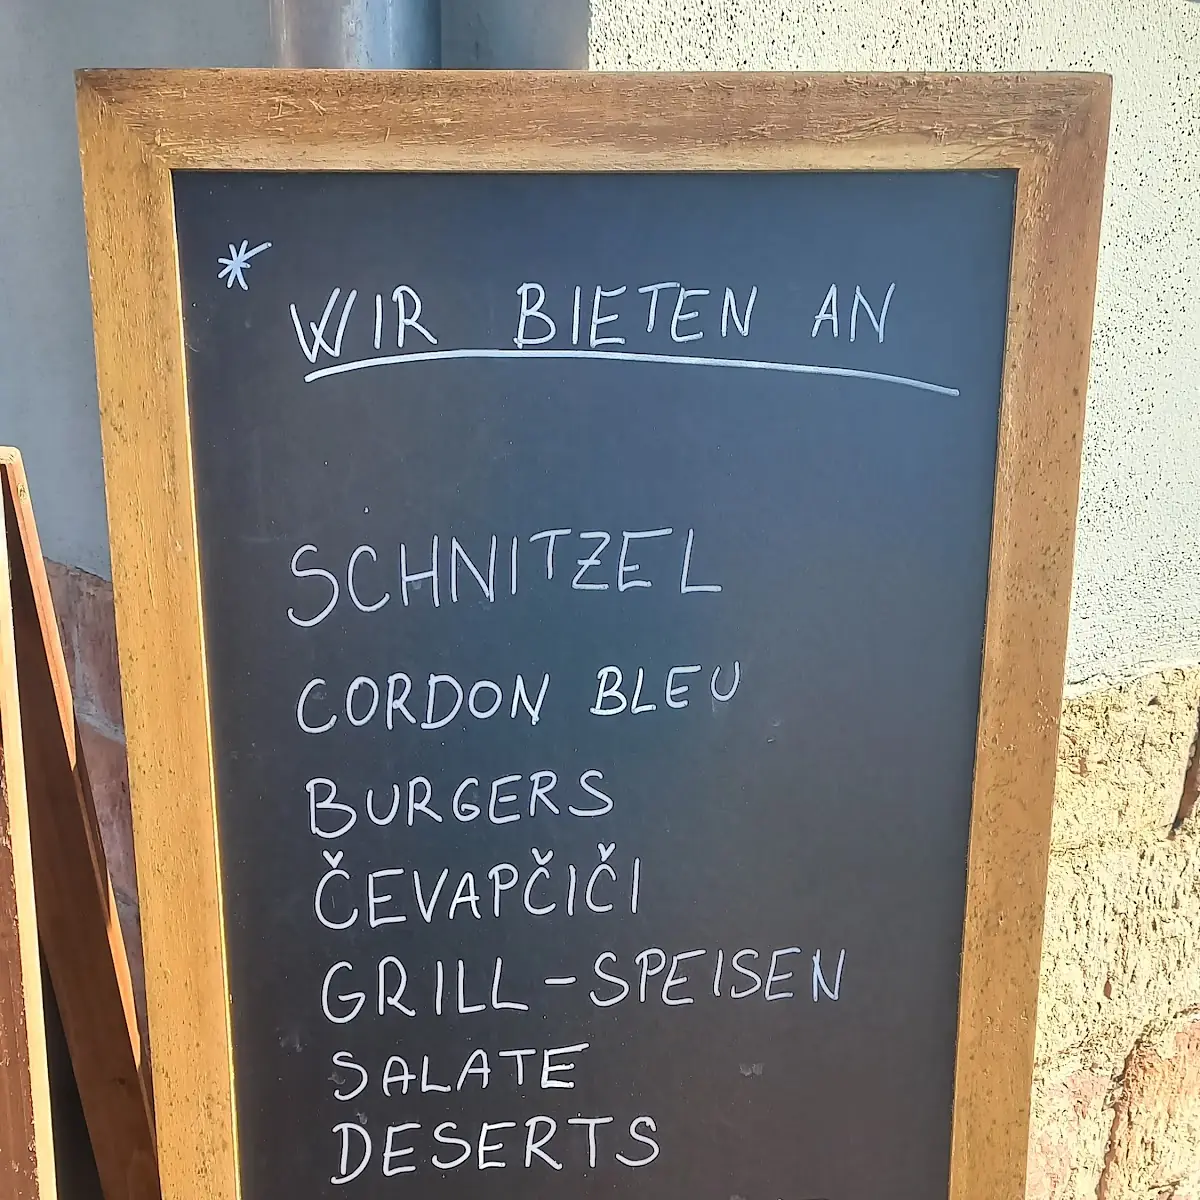 * WIR BIETEN AN
SCHNITZEL
CORDON BLEU
BURGERS
ČEVAPČIČI
GRILL-SPEISEN
SALATE
DESERTS